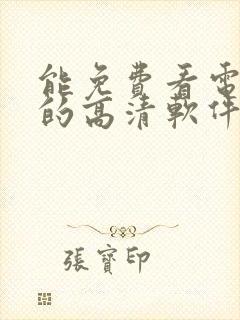 能免費看電
的高清軟件
張寶印